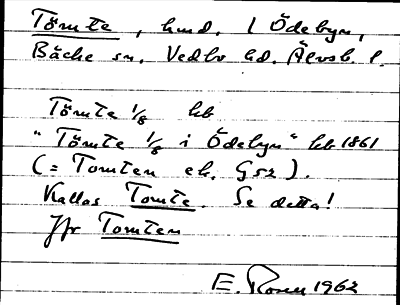 Tömte, hmd. 1 Ödebyn,
Bäcke sn. Vedbo hd. Älvsb. l.
Tömte 1/8 kb
"Tömte 1/8 i Ödebyn" kb 1861
(= Tomten ek. G52).
Kallas Tomte. Se detta!
Jfr Tomten
E. Rosen 1962